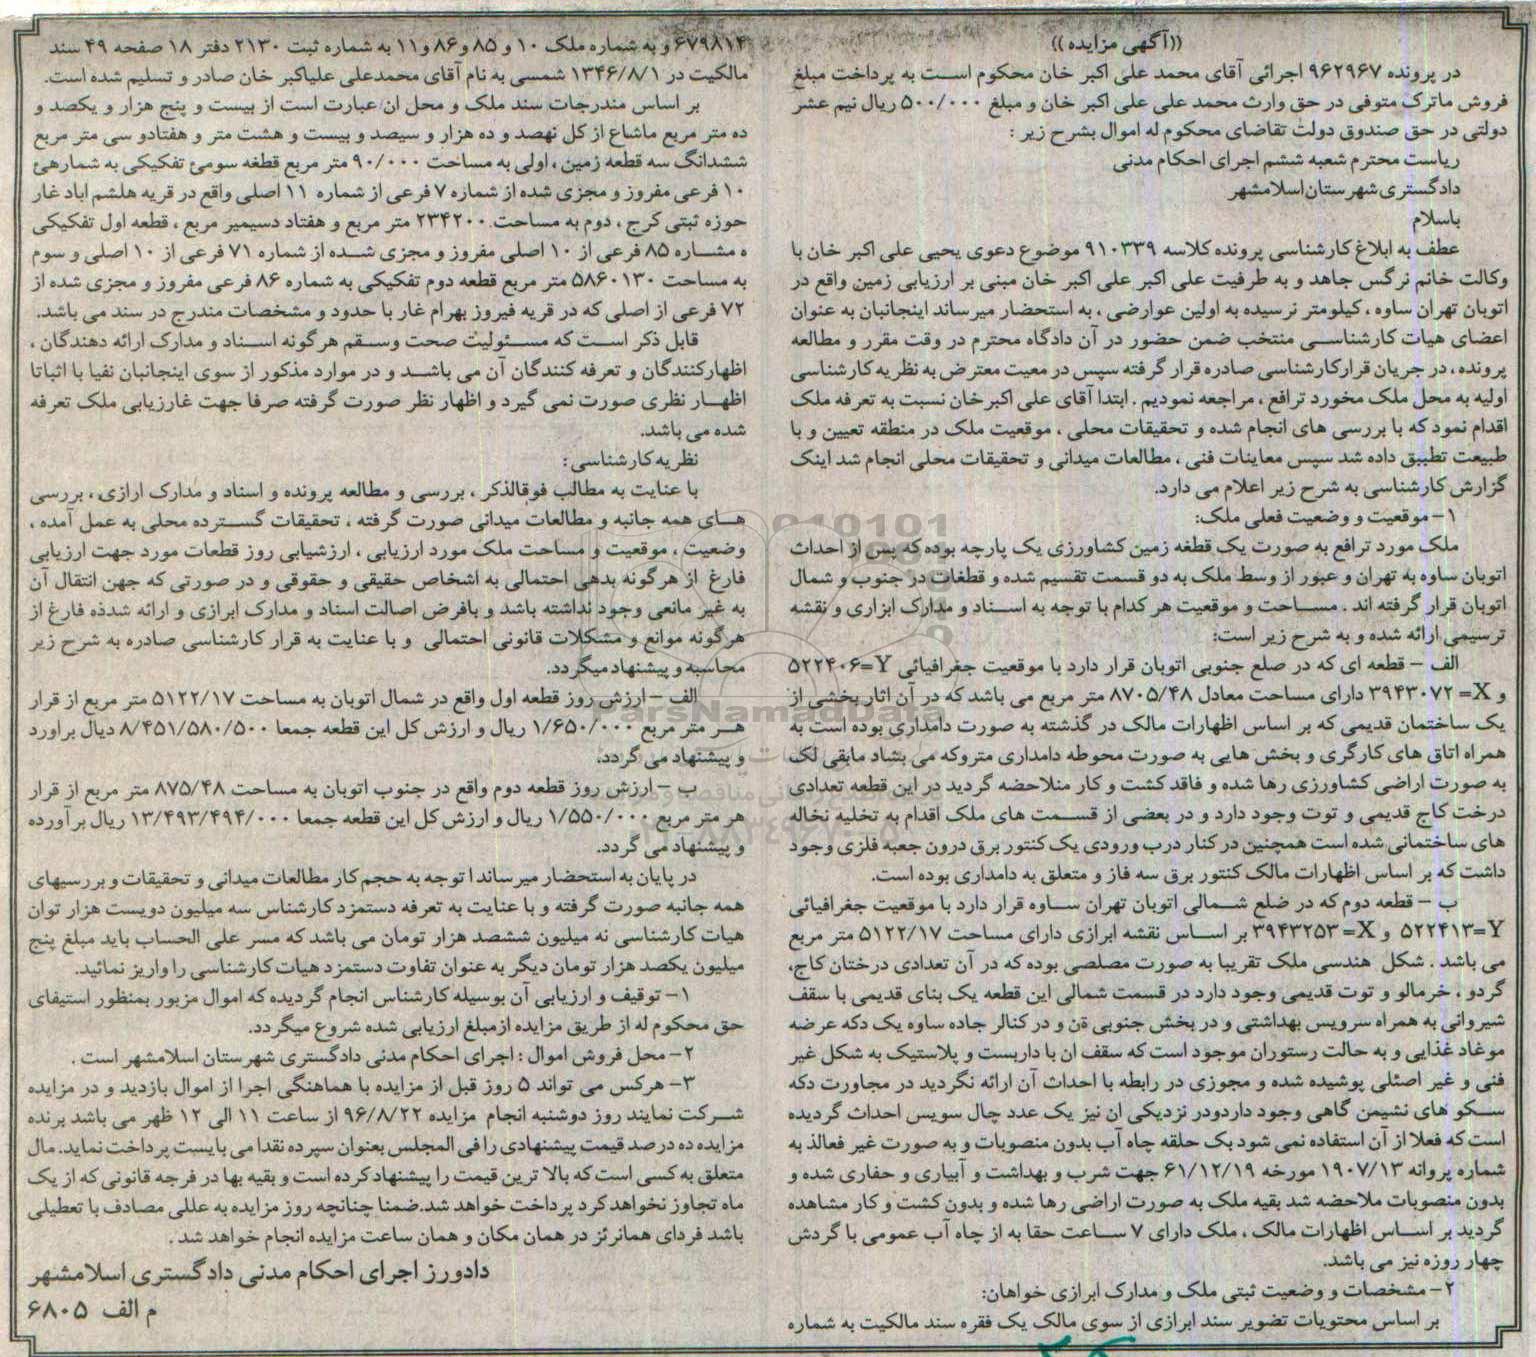 ((آگهی مزایده))
در پرونده ۹۶۲۹۶۷ اجرائی آقای محمد علی اکبر خان محکوم است به پرداخت مبلغ
فروش ماترک متوفی در حق وارث محمد علی علی اکبر خان و مبلغ ۵۰۰/۰۰۰ ریال نیم عشر
دولتی در حق صندوق دولت تقاضای محکوم له اموال بشرح زیر :
ریاست محترم شعبه ششم اجرای احکام مدنی
دادگستری شهرستان اسلامشهر
باسلام
عطف به ابلاغ کارشناسی پرونده کلاسه ۹۱۰۳۳۹ موضوع دعوی یحیی علی اکبر خان با
وکالت خانم نرگس جاهد و به طرفیت علی اکبر علی اکبر خان مبنی بر ارزیابی زمین واقع در
اتوبان تهران ساوه ، کیلومتر نرسیده به اولین عوارضی ، به استحضار میرساند اینجانبان به عنوان
اعضای هیات کارشناسی منتخب ضمن حضور در آن دادگاه محترم در وقت مقرر و مطالعه
پرونده ، در جریان قرارکارشناسی صادره قرار گرفته سپس در معیت معترض به نظریه کارشناسی
اولیه به محل ملک مخورد ترافع ، مراجعه نمودیم . ابتدا آقای علی اکبرخان نسبت به تعرفه ملک
اقدام نمود که با بررسی های انجام شده و تحقیقات محلی ، موقعیت ملک در منطقه تعیین و با
طبیعت تطبیق داده شد سپس معاینات فنی ، مطالعات میدانی و تحقیقات محلی انجام شد اینک
گزارش کارشناسی به شرح زیر اعلام می دارد.
۱- موقعیت و وضعیت فعلی ملک:
ملک مورد ترافع به صورت یک قطعه زمین کشاورزی یک پارچه بوده که پس از احداث
اتوبان ساوه به تهران و عبور از وسط ملک به دو قسمت تقسیم شده و قطعات در جنوب و شمال
اتوبان قرار گرفته اند . مساحت و موقعیت هر کدام با توجه به اسناد و مدارک ابزاری و نقشه
ترسیمی ارائه شده و به شرح زیر است:
الف - قطعه ای که در صلع جنوبی اتوبان قرار دارد با موقعیت جغرافیائی Y=۵۲۲۴۰۶
و X= ۳۹۴۳۰۷۲ دارای مساحت معادل ۸۷۰۵/۴۸ متر مربع می باشد که در آن اثار بخشی از
یک ساختمان قدیمی که بر اساس اظهارات مالک در گذشته به صورت دامداری بوده است به
همراه اتاق های کارگری و بخش هایی به صورت محوطه دامداری متروکه می بشاد مابقی لک
به صورت اراضی کشاورزی رها شده و فاقد کشت و کار منلاحضه گردید در این قطعه تعدادی
درخت کاج قدیمی و توت وجود دارد و در بعضی از قسمت های ملک اقدام به تخلیه نخاله
های ساختمانی شده است همچنین در کنار درب ورودی یک کنتور برق درون جعبه فلزی وجود
داشت که بر اساس اظهارات مالک کنتور برق سه فاز و متعلق به دامداری بوده است.
ب - قطعه دوم که در ضلع شمالی اتوبان تهران ساوه قرار دارد با موقعیت جغرافیائی
Y=۵۲۲۴۱۳ و X= ۳۹۴۳۲۵۳ بر اساس نقشه ابرازی دارای مساحت ۵۱۲۲/۱۷ متر مربع
می باشد . شکل هندسی ملک تقریبا به صورت مصلصی بوده که در آن تعدادی درختان کاج،
گردو ، خرمالو و توت قدیمی وجود دارد در قسمت شمالی این قطعه یک بنای قدیمی با سقف
شیروانی به همراه سرویس بهداشتی و در بخش جنوبی ةن و در کنالر جاده ساوه یک دکه عرضه
موغاد غذایی و به حالت رستوران موجود است که سقف ان با داربست و پلاستیک به شکل غیر
فنی و غیر اصئلی پوشیده شده و مجوزی در رابطه با احداث آن ارائه نگردید در مجاورت دکه
سکو های نشیمن گاهی وجود داردودر نزدیکی ان نیز یک عدد چال سویس احداث گردیده
است که فعلا از آن استفاده نمی شود بک حلقه چاه آب بدون منصوبات و به صورت غیر فعالذ به
شماره پروانه ۱۹۰۷/۱۳ مورخه ۶۱/۱۲/۱۹ جهت شرب و بهداشت و آبیاری و حفاری شده و
بدون منصوبات ملاحضه شد بقیه ملک به صورت اراضی رها شده و بدون کشت و کار مشاهده
گردید بر اساس اظهارات مالک ، ملک دارای ۷ ساعت حقا به از چاه آب عمومی با گردش
چهار روزه نیز می باشد.
۲- مشخصات و وضعیت ثبتی ملک و مدارک ابرازی خواهان:
بر اساس محتویات تضویر سند ابرازی از سوی مالک یک فقره سند مالکیت به شماره
۶۷۹۸۱۴ و به شماره ملک ۱۰ و ۸۵ و ۸۶ و ۱۱ به شماره ثبت ۲۱۳۰ دفتر ۱۸ صفحه ۴۹ سند
مالکیت در ۱۳۴۶/۸/۱ شمسی به نام آقای محمدعلی علیاکبر خان صادر و تسلیم شده است.
بر اساس مندرجات سند ملک و محل ان عبارت است از بیست و پنج هزار و یکصد و
ده متر مربع ماشاع از کل نهصد و ده هزار و سیصد و بیست و هشت متر و هفتادو سی متر مربع
ششدانگ سه قطعه زمین ، اولی به مساحت ۹۰/۰۰۰ متر مربع قطغه سومئ تفکیکی به شمارهئ
۱۰ فرعی مفروز و مجزی شده از شماره ۷ فرعی از شماره ۱۱ اصلی واقع در قریه هلشم اباد غار
حوزه ثبتی کرج ، دوم به مساحت ۲۳۴۲۰۰ متر مربع و هفتاد دسیمیر مربع ، قطعه اول تفکیکی
ه مشاره ۸۵ فرعی از ۱۰ اصلی مفروز و مجزی شده از شماره ۷۱ فرعی از ۱۰ اصلی و سوم
به مساحت ۵۸۶۰۱۳۰ متر مربع قطعه دوم تفکیکی به شماره ۸۶ فرعی مفروز و مجزی شده از
۷۲ فرعی از اصلی که در قریه فیروز بهرام غار با حدود و مشخصات مندرج در سند می باشد.
قابل ذکر است که مسئولیت صحت وسقم هرگونه اسناد و مدارک ارائه دهندگان ،
اظهارکنندگان و تعرفه کنندگان آن می باشد و در موارد مذکور از سوی اینجانبان نفیا با اثباتا
اظهار نظری صورت نمی گیرد و اظهار نظر صورت گرفته صرفا جهت غارزیابی ملک تعرفه
شده می باشد.
نظریه کارشناسی :
با عنایت به مطالب فوقالذکر ، بررسی و مطالعه پرونده و اسناد و مدارک ارازی ، بررسی
های همه جانبه و مطالعات میدانی صورت گرفته ، تحقیقات گسترده محلی به عمل آمده ،
وضعیت ، موقعیت و مساحت ملک مورد ارزیابی ، ارزشیابی روز قطعات مورد جهت ارزیابی
فارغ از هرگونه بدهی احتمالی به اشخاص حقیقی و حقوقی و در صورتی که جهن انتقال آن
به غیر مانعی وجود نداشته باشد و بافرض اصالت اسناد و مدارک ابرازی و ارائه شدذه فارغ از
هرگونه موانع و مشکلات قانونی احتمالی و با عنایت به قرار کارشناسی صادره به شرح زیر
محاسبه و پیشنهاد میگردد.
الف - ارزش روز قطعه اول واقع در شمال اتوبان به مساحت ۵۱۲۲/۱۷ متر مربع از قرار
هر متر مربع ۱/۶۵۰/۰۰۰ ریال و ارزش کل این قطعه جمعا ۸/۴۵۱/۵۸۰/۵۰۰ دیال براورد
و پیشنهاد می گردد.
ب - ارزش روز قطعه دوم واقع در جنوب اتوبان به مساحت ۸۷۵/۴۸ متر مربع از قرار
هر متر مربع ۱/۵۵۰/۰۰۰ ریال و ارزش کل این قطعه جمعا ۱۳/۴۹۳/۴۹۴/۰۰۰ ریال بر آورده
و پیشنهاد می گردد.
در پایان به استحضار میرساند ا توجه به حجم کار مطالعات میدانی و تحقیقات و بررسیهای
همه جانبه صورت گرفته و با عنایت به تعرفه دستمزد کارشناس سه میلیون دویست هزار توان
هیات کارشناسی نه میلیون ششصد هزار تومان می باشد که مسر علی الحساب باید مبلغ پنج
میلیون یکصد هزار تومان دیگر به عنوان تفاوت دستمزد هیات کارشناسی را واریز نمائید.
۱- توقیف و ارزیابی آن بوسیله کارشناس انجام گردیده که اموال مزبور بمنظور استیفای
حق محکوم له از طریق مزایده ازمبلغ ارزیابی شده شروع میگردد.
۲- محل فروش اموال : اجرای احکام مدنی دادگستری شهرستان اسلامشهر است .
۳- هرکس می تواند ۵ روز قبل از مزایده با هماهنگی اجرا از اموال بازدید و در مزایده
شرکت نمایند روز دوشنبه انجام مزایده ۹۶/۸/۲۲ از ساعت ۱۱ الی ۱۲ ظهر می باشد برنده
مزایده ده درصد قیمت پیشنهادی را فی المجلس بعنوان سپرده نقدا می بایست پرداخت نماید. مال
متعلق به کسی است که بالا ترین قیمت را پیشنهاد کرده است و بقیه بها در فرجه قانونی که از یک
ماه تجاوز نخواهد کرد پرداخت خواهد شد.ضمنا چنانچه روز مزایده به عللی مصادف با تعطیلی
باشد فردای همانرئز در همان مکان و همان ساعت مزایده انجام خواهد شد .
دادورز اجرای احکام مدنی دادگستری اسلامشهر
م الف ۶۸۰۵
ParsNamadData